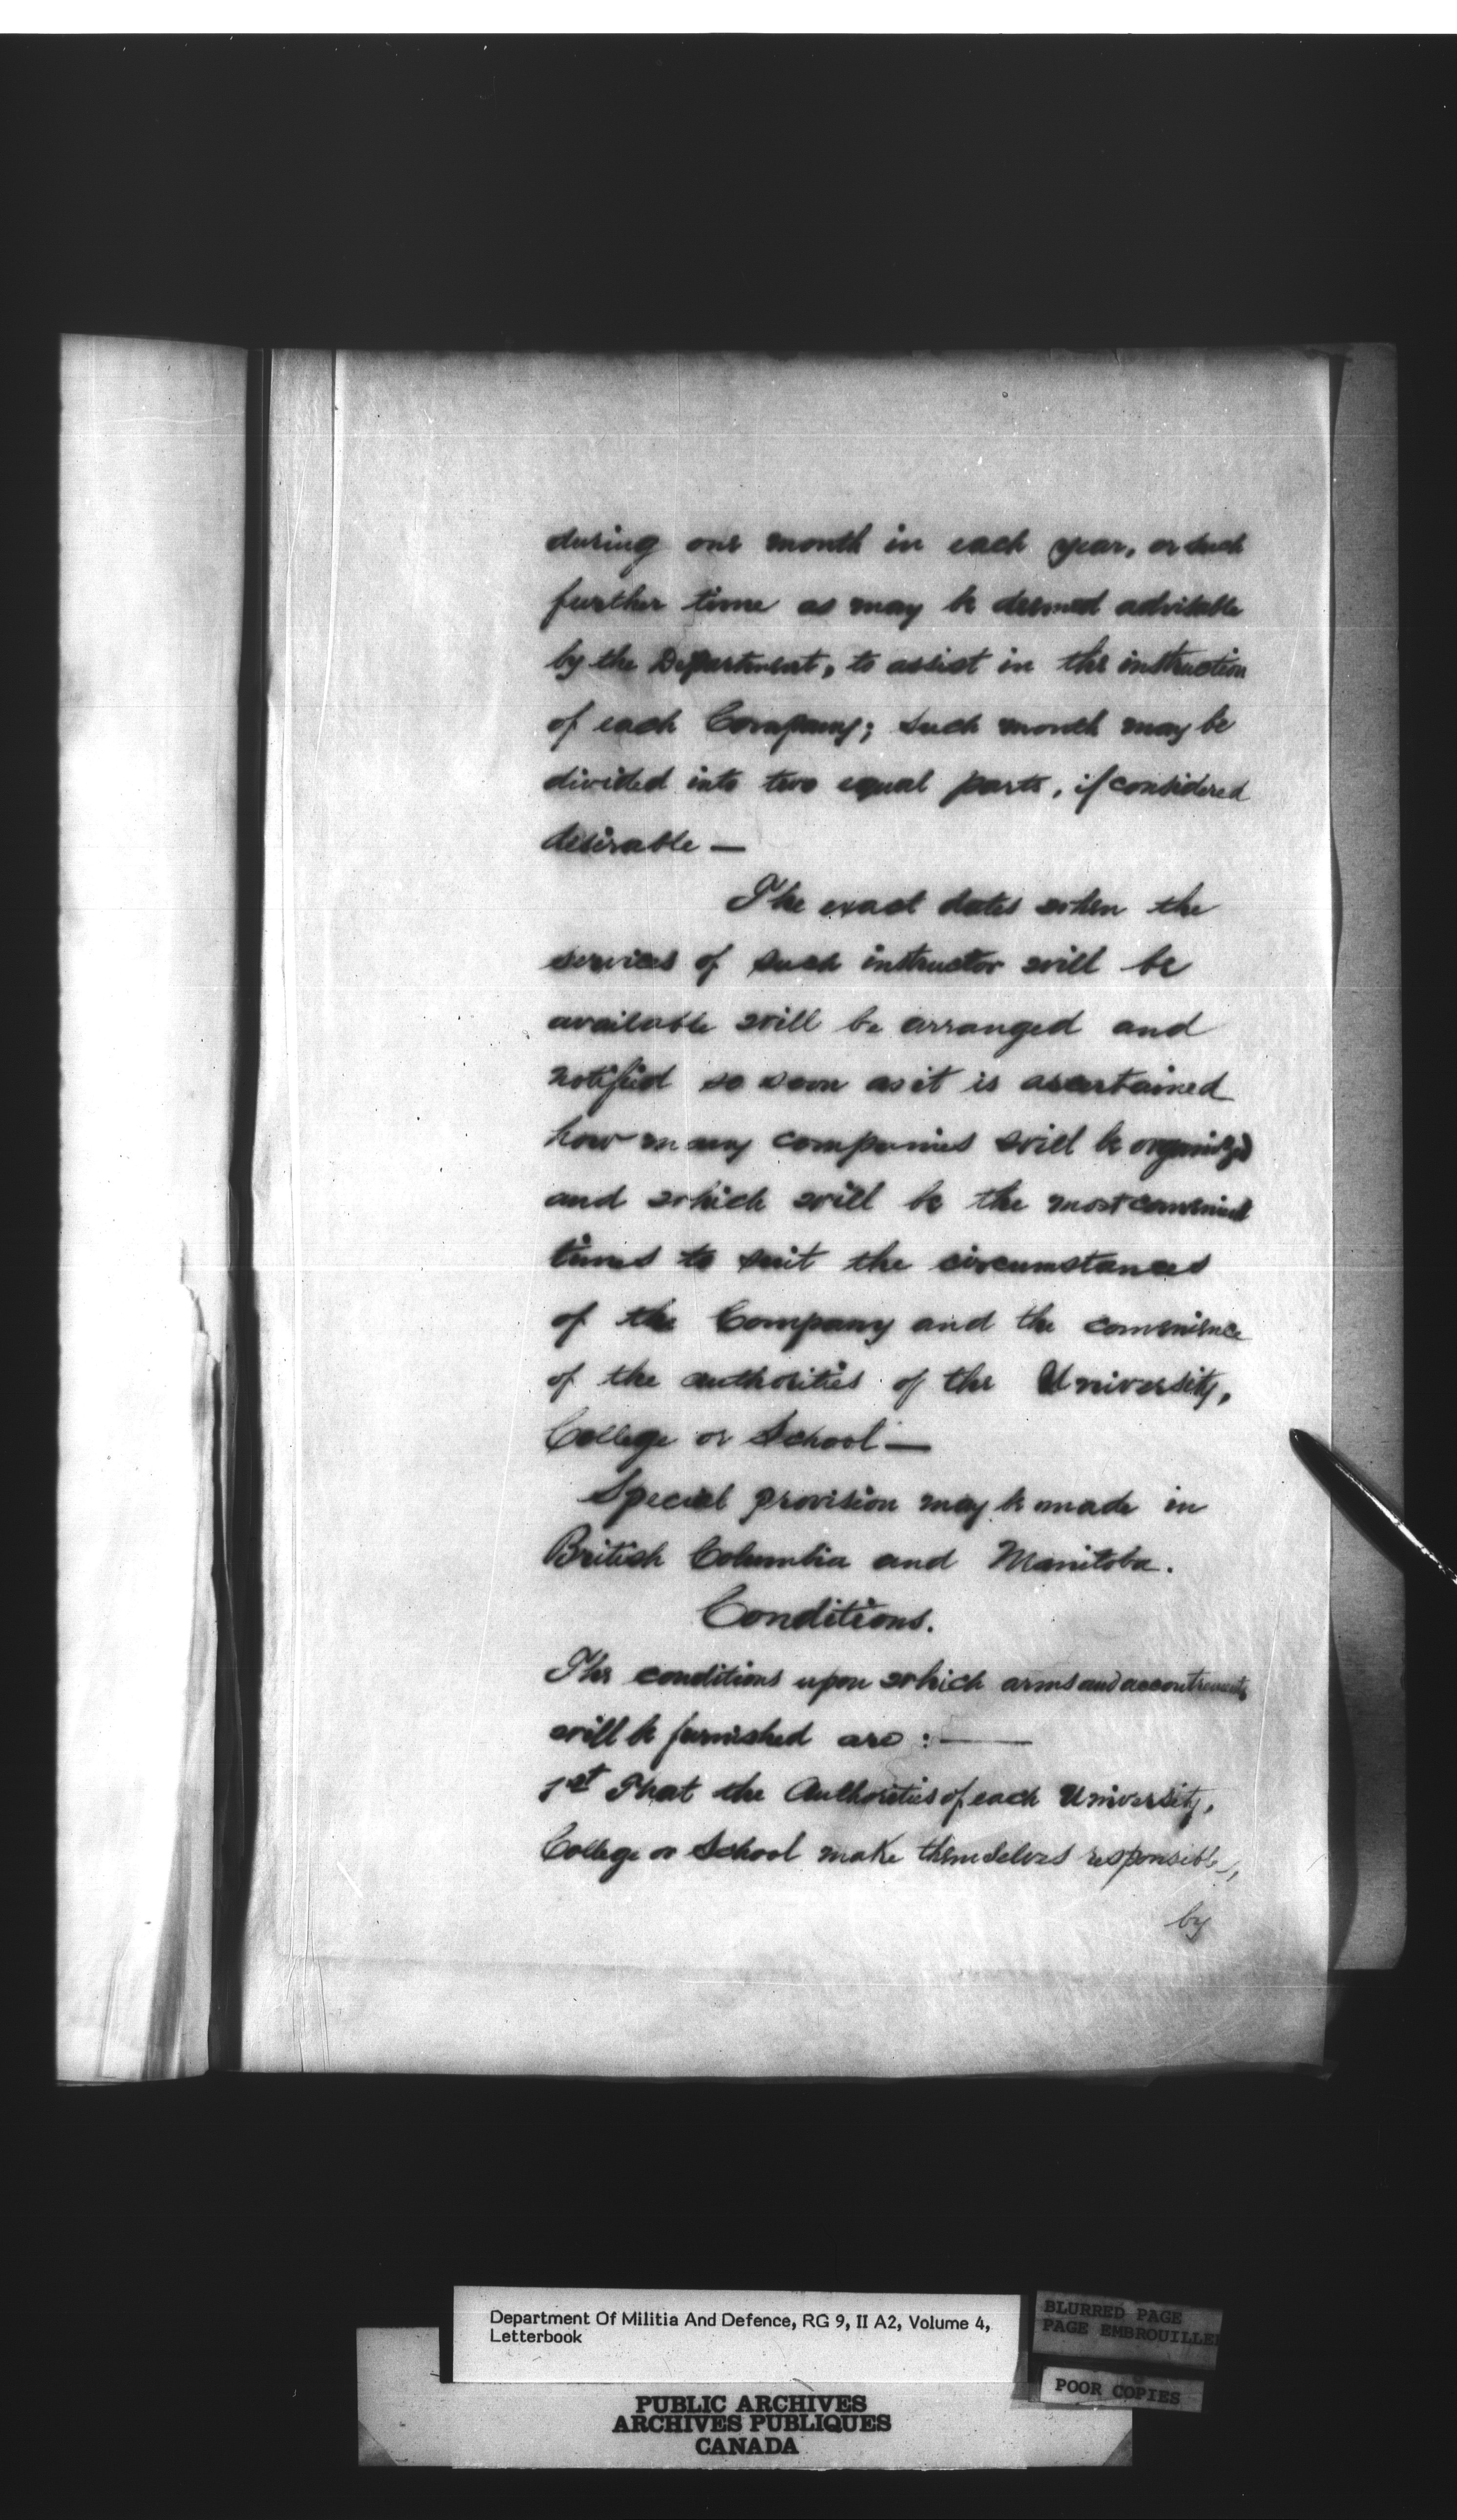 during one month in each year, or such
further time as may be deemed advisable
by the Department, to assist in the instruction
of each Company; such month may be
divided into two equal parts, if considered
desirable —
The exact dates when the
services of such instructor will be
available will be arranged and
notified so soon as it is ascertained
how many companies will be organized
and which will be the most convenient
times to suit the circumstances
of the Company and the convenience
of the authorities of the University,
College or School —
Special provision may be made in
British Columbia and Manitoba.
Conditions.
The conditions upon which arms and accoutrements
will be furnished are : —
1st That the Authorities of each University,
College or School make themselves responsible,
by
Department Of Militia And Defence, RG 9, II A2, Volume 4,
Letterbook
BLURRED PAGE
PAGE EMBROUILLEE
POOR COPIES
PUBLIC ARCHIVES
ARCHIVES PUBLIQUES
CANADA